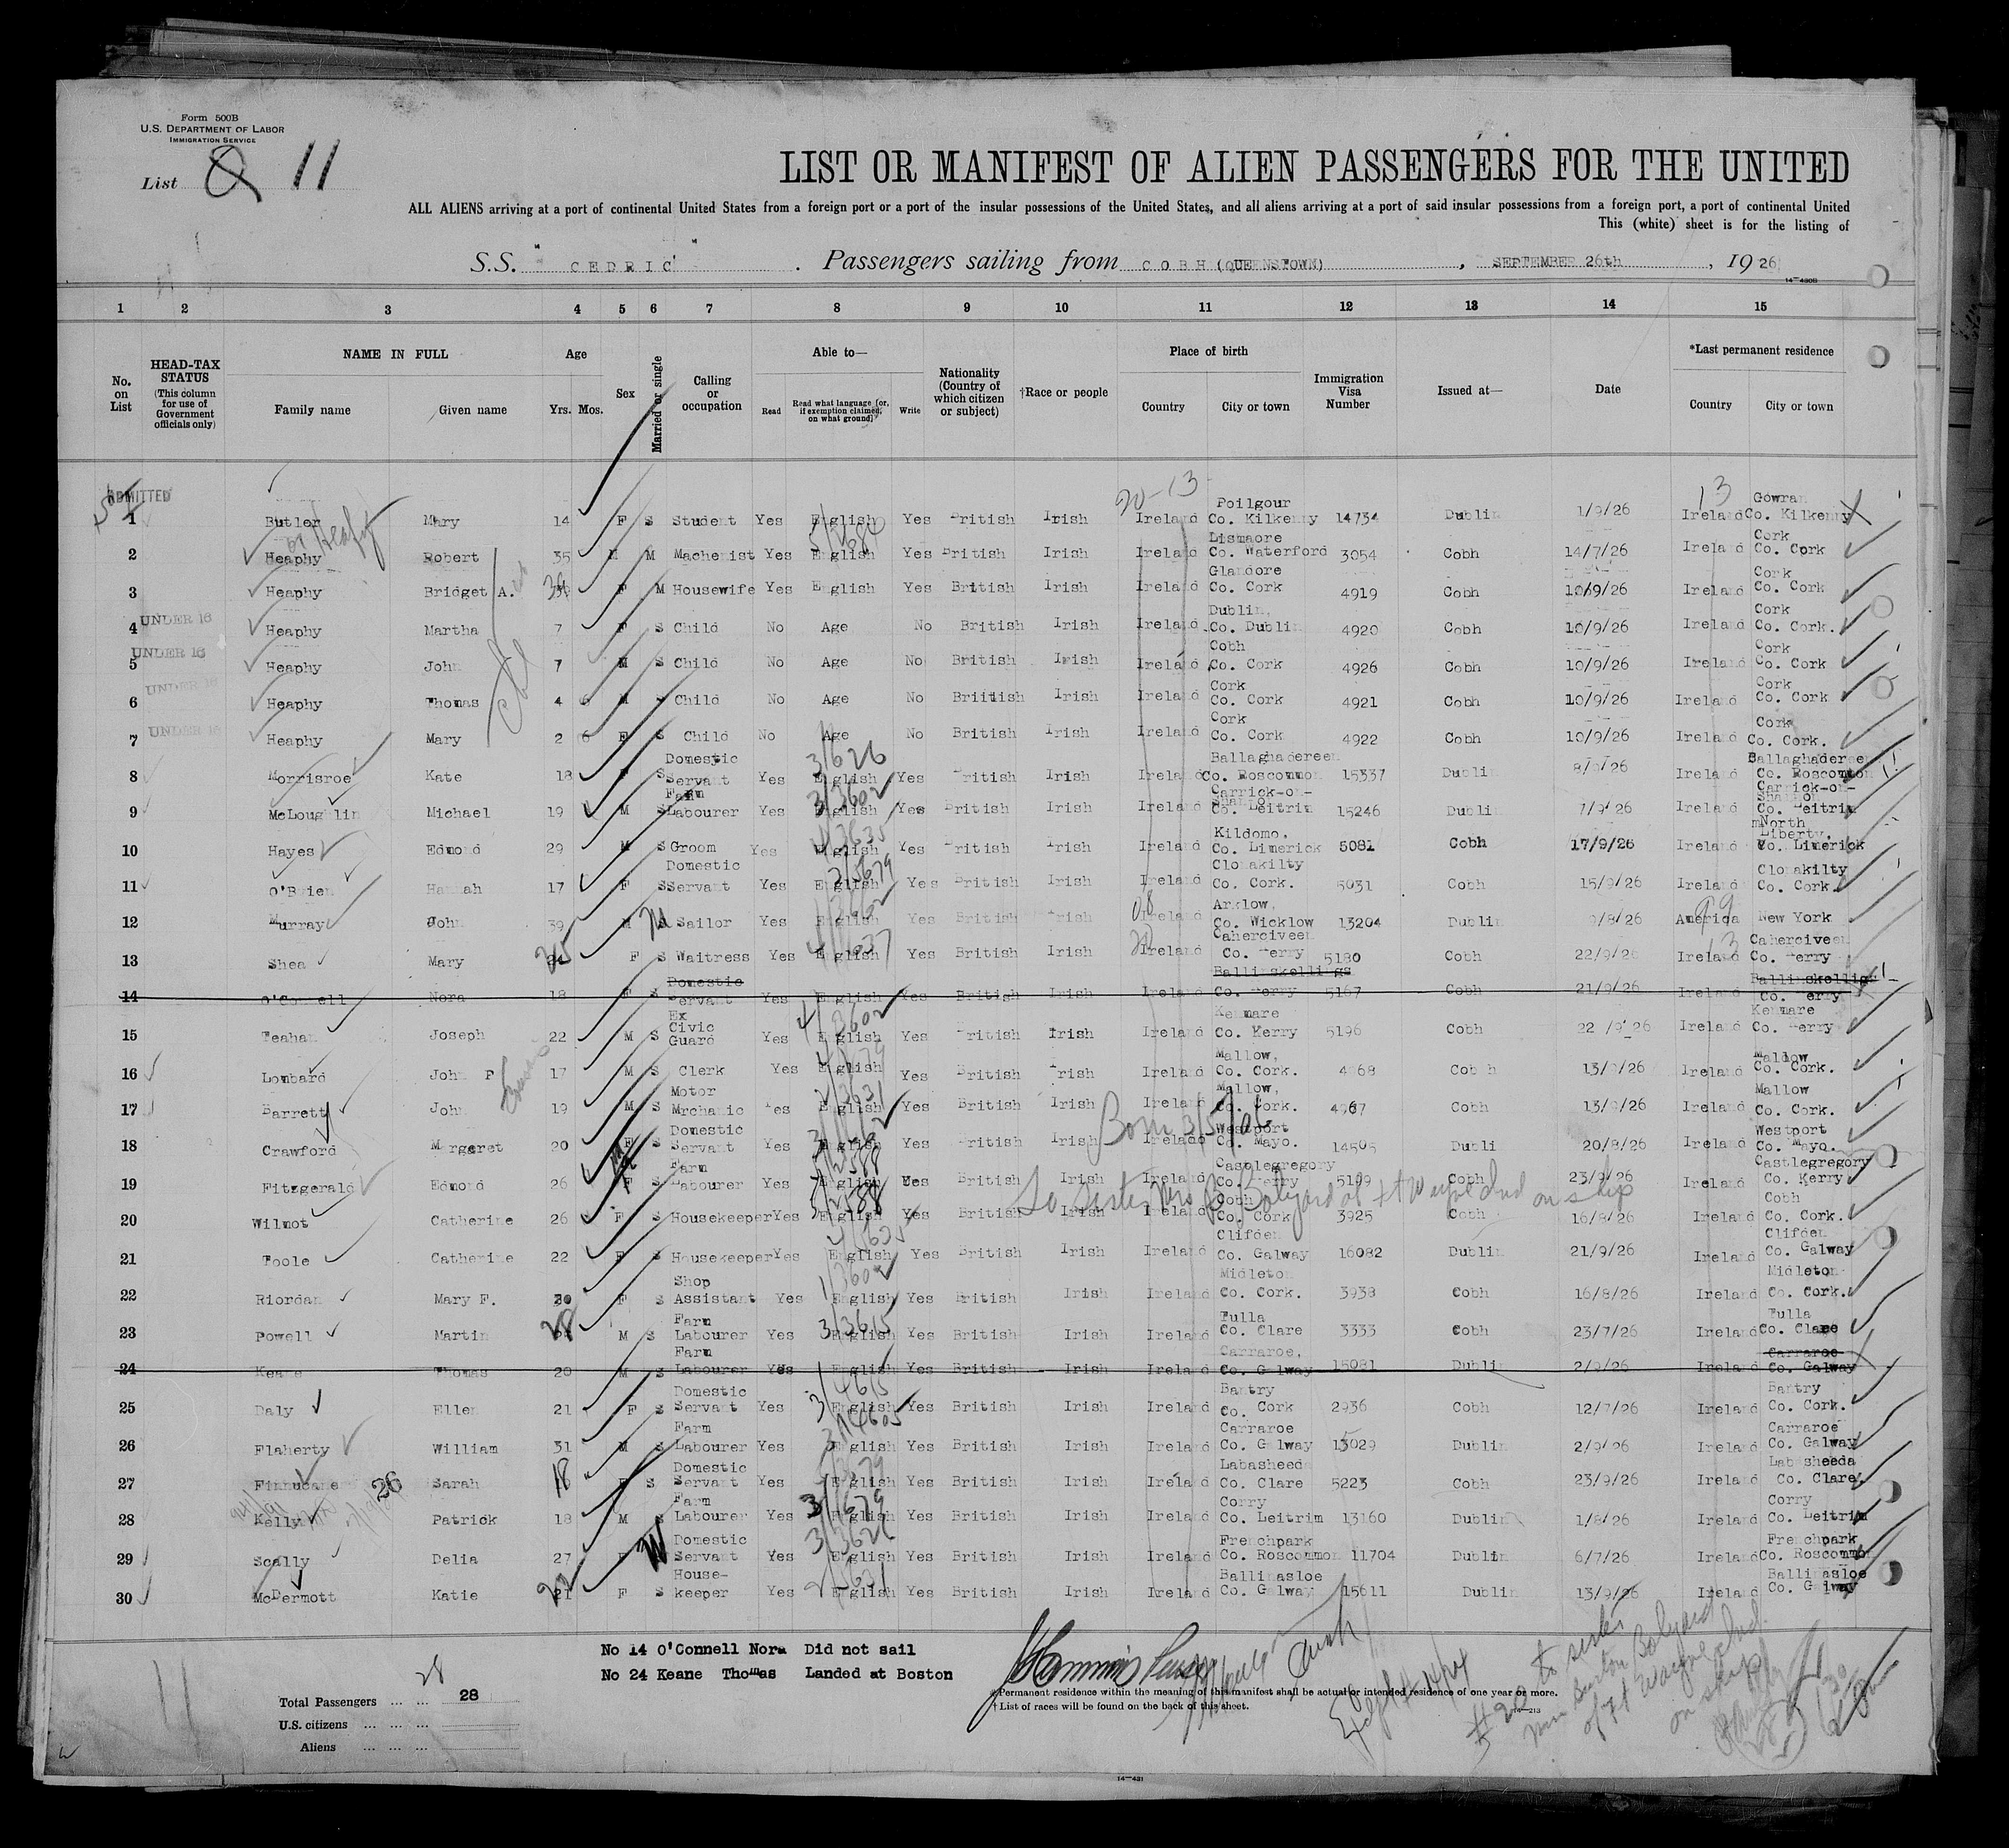 Form 500B
U.S. DEPARTMENT OF LABOR
IMMIGRATION SERVICE
List 11
LIST OR MANIFEST OF ALIEN PASSENGERS FOR THE UNITED
ALL ALIENS arriving at a port of continental United States from a foreign port or a port of the insular possessions of the United States, and all aliens arriving at a port of said insular possessions from a foreign port, a port of continental United
This (white) sheet is for the listing of
S.S. " CEDRIC " . Passengers sailing from COBH (QUEENSTOWN) , SEPTEMBER 26th , 1926
14—430B
1 2 3 4 5 6 7 8 9 10 11 12 13 14 15
No. on List
HEAD-TAX STATUS (This column for use of Government officials only)
NAME IN FULL Family name Given name
Age Yrs. Mos.
Sex
Married or single
Calling or occupation
Able to— Read Read what language [or, if exemption claimed, on what ground] Write
Nationality (Country of which citizen or subject)
†Race or people
Place of birth Country City or town
Immigration Visa Number
Issued at—
Date
*Last permanent residence Country City or town
ADMITTED
1 Butler Mary 14 F S Student Yes English Yes British Irish Ireland Poilgour Co. Kilkenny 14734 Dublin 1/9/26 Ireland Gowran Co. Kilkenny
2 Heaphy Robert 35 M M Machenist Yes English Yes British Irish Ireland Lismaore Co. Waterford 3054 Cobh 14/7/26 Ireland Cork Co. Cork
3 Heaphy Bridget A. F M Housewife Yes English Yes British Irish Ireland Glandore Co. Cork 4919 Cobh 10/9/26 Ireland Cork Co. Cork
UNDER 16
4 Heaphy Martha 7 F S Child No Age No British Irish Ireland Dublin, Co. Dublin 4920 Cobh 10/9/26 Ireland Cork Co. Cork.
UNDER 16
5 Heaphy John 7 M S Child No Age No British Irish Ireland Cobh Co. Cork 4926 Cobh 10/9/26 Ireland Cork Co. Cork
UNDER 16
6 Heaphy Thomas 4 6 M S Child No Age No Briitish Irish Ireland Cork Co. Cork 4921 Cobh 10/9/26 Ireland Cork Co. Cork
UNDER 16
7 Heaphy Mary 2 6 F S Child No Age No British Irish Ireland Cork Co. Cork 4922 Cobh 10/9/26 Ireland Cork Co. Cork.
8 Morrisroe Kate 18 F S Domestic Servant Yes English Yes British Irish Ireland Ballaghadereen Co. Roscommon 15337 Dublin Ireland Ballaghadereen Co. Roscommon
9 McLoughlin Michael 19 M S Farm Labourer Yes English Yes British Irish Ireland Carrick-on-Shannon Co. Leitrim 15246 Dublin 7/9/26 Ireland Carrick-on-Shannon Co. Leitrim
10 Hayes Edmond 29 M S Groom Yes English Yes British Irish Ireland Kildomo, Co. Limerick 5081 Cobh 17/9/26 Ireland North Liberty, Co. Limerick
11 O'Brien Hannah 17 F S Domestic Servant Yes English Yes British Irish Ireland Clonakilty Co. Cork. 5031 Cobh 15/9/26 Ireland Clonakilty Co. Cork.
12 Murray John 39 M Sailor Yes English Yes British Irish Ireland Arklow, Co. Wicklow 13204 Dublin America New York
13 Shea Mary 25 F S Waitress Yes English Yes British Irish Ireland Caherciveen Co. Kerry 5180 Cobh 22/9/26 Ireland Caherciveen Co. Kerry
14 O'Connell Nora 18 F S Domestic Servant Yes English Yes British Irish Ireland Ballinskelligs Co. Kerry 5167 Cobh 21/9/26 Ireland Ballinskelligs Co. Kerry
15 Feahan Joseph 22 M S Ex Civic Guard Yes English Yes British Irish Ireland Kenmare Co. Kerry 5196 Cobh 22/9/26 Ireland Kenmare Co. Kerry
16 Lombard John P 17 M S Clerk Yes English Yes British Irish Ireland Mallow, Co. Cork. 4968 Cobh 13/9/26 Ireland Mallow Co. Cork.
17 Barrett John 19 M S Motor Mrchanic Yes English Yes British Irish Ireland Mallow, Co. Cork. 4967 Cobh 13/9/26 Ireland Mallow Co. Cork.
18 Crawford Margaret 20 F S Domestic Servant Yes English Yes British Irish Born 3/5/06 Ireland Westport Co. Mayo. 14505 Dublin 20/8/26 Ireland Westport Co. Mayo.
19 Fitzgerald Edmond 26 M S Farm Labourer Yes English Yes British Irish Ireland Castlegregory Co. Kerry 5199 Cobh 23/9/26 Ireland Castlegregory Co. Kerry
to sister Mrs B. Bolyard of Ft Wayne Ind on ship
20 Wilmot Catherine 26 F S Housekeeper Yes English Yes British Irish Ireland Cobh Co. Cork 3925 Cobh 16/8/26 Ireland Cobh Co. Cork.
21 Toole Catherine 22 F S Housekeeper Yes English Yes British Irish Ireland Clifden Co. Galway 16082 Dublin 21/9/26 Ireland Clifden Co. Galway
22 Riordan Mary F. 30 F S Shop Assistant Yes English Yes British Irish Ireland Midleton Co. Cork. 3938 Cobh 16/8/26 Ireland Midleton Co. Cork.
23 Powell Martin 28 M S Farm Labourer Yes English Yes British Irish Ireland Tulla Co. Clare 3333 Cobh 23/7/26 Ireland Tulla Co. Clare
24 Keane Thomas 20 M S Farm Labourer Yes English Yes British Irish Ireland Carraroe, Co. Galway 15081 Dublin 2/9/26 Ireland Carraroe Co. Galway
25 Daly Ellen 21 F S Domestic Servant Yes English Yes British Irish Ireland Bantry Co. Cork 2936 Cobh 12/7/26 Ireland Bantry Co. Cork.
26 Flaherty William 31 M S Farm Labourer Yes English Yes British Irish Ireland Carraroe Co. Galway 15029 Dublin 2/9/26 Ireland Carraroe Co. Galway
27 Finnucane 26 Sarah 18 F S Domestic Servant Yes English Yes British Irish Ireland Labasheeda Co. Clare 5223 Cobh 23/9/26 Ireland Labasheeda Co. Clare
28 Kelly Patrick 18 M S Farm Labourer Yes English Yes British Irish Ireland Corry Co. Leitrim 13160 Dublin 1/8/26 Ireland Corry Co. Leitrim
29 Scally Delia 27 F Domestic Servant Yes English Yes British Irish Ireland Frenchpark Co. Roscommon 11704 Dublin 6/7/26 Ireland Frenchpark Co. Roscommon
30 McDermott Katie 22 F S House-keeper Yes English Yes British Irish Ireland Ballinasloe Co. Galway 15611 Dublin 13/9/26 Ireland Ballinasloe Co. Galway
No 14 O'Connell Nora Did not sail
No 24 Keane Thomas Landed at Boston
11
28
Total Passengers ... ... 28
U.S. citizens ... ... ...
Aliens ... ... ...
* Permanent residence within the meaning of this manifest shall be actual or intended residence of one year or more.
† List of races will be found on the back of this sheet.
14—213
#20 to sister
Mrs Burton Bolyard
of Ft Wayne Ind.
on ship
14—431